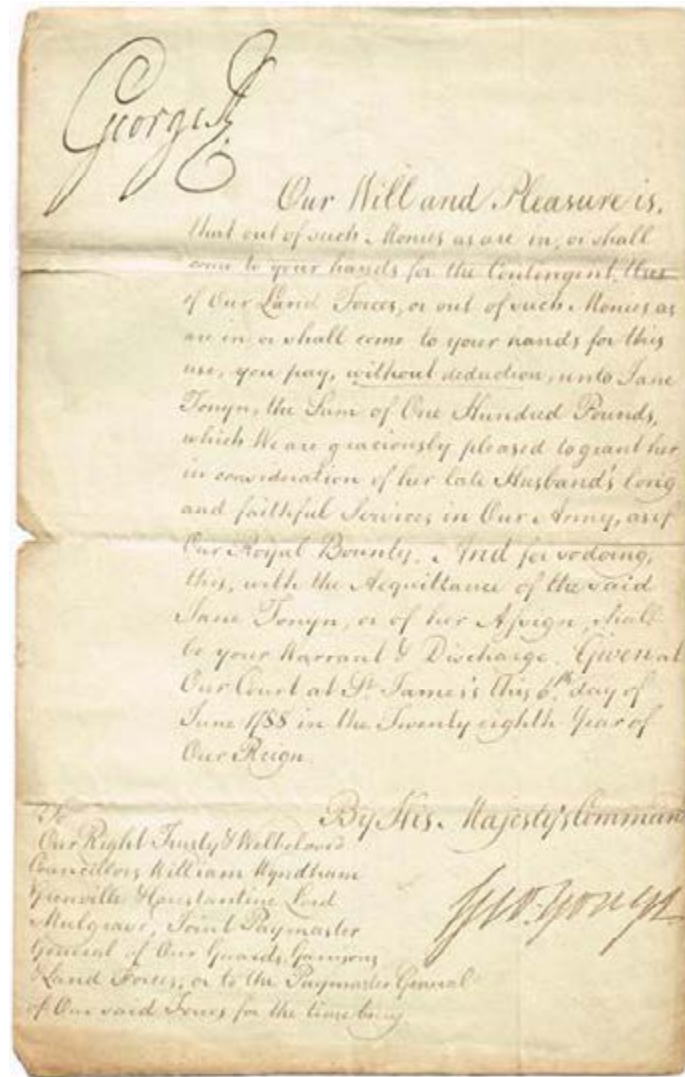 George R
Our Will and Pleasure is,
that out of such Monies as are in, or shall
come to your hands for the Contingent Uses
of Our Land Forces, or out of such Monies as
are in or shall come to your hands for this
use, you pay, without deduction, unto Jane
Tonyn, the Sum of One Hundred Pounds,
which We are graciously pleased to grant her
in consideration of her late Husband's long
and faithful Services in Our Army, as of
Our Royal Bounty. And for so doing,
this, with the Acquittance of the said
Jane Tonyn, or of her Assign, shall
be your Warrant & Discharge. Given at
Our Court at St. James's this 6.th day of
June 1788 in the Twenty eighth Year of
Our Reign.
By His Majesty's Command
Geo. Yonge
To
Our Right Trusty & Welbeloved
Councillors William Wyndham
Grenville & Constantine Lord
Mulgrave, Joint Paymaster
General of Our Guards, Garrisons
& Land Forces, or to the Paymaster General
of Our said Forces for the time being